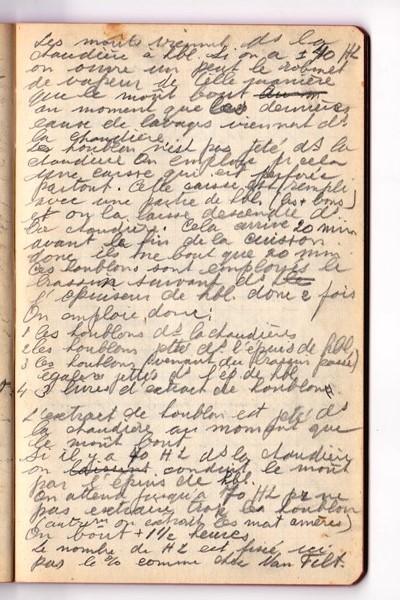 Les moûts viennent ds la
chaudière à hbl. Si on a ± 40 HL
on ouvre un peu le robinet
de vapeur de telle manière
que le moût bout
au moment que les dernières
eaux de lavages viennent ds
la chaudière.
Le houblon n'est pas jeté ds la
chaudière On emploie pr cela
une caisse qui est perforée
partout. Cette caisse est rempli
avec une partie de hbl. (les + bons)
et on la laisse descendre ds
la chaudière. Cela arrive 20 min
avant la fin de la cuisson.
donc ils ne bout que 20 min.
Ces houblons sont employés le
brassin suivant ds
l'épuiseur de hbl. donc 2 fois
On emploie donc:
1 les houblons ds la chaudière
2 les houblons jetés ds l'épuis de hbl.
3 les houblons provenant du brassin passé
également jettés ds l'ép de hbl
4 3 livres d'extract de houblon
L'extract de houblon est jeté ds
la chaudière au moment que
le moût bout
Si il y a 70 HL ds la chaudière
on conduit le moût
par l'épuis de hbl.
On attend jusqu'à 70 HL pr ne
pas extraire trop les houblons
(autrem on extrait les mat amères)
On bout ± 1 1/2 heures
Le nombre de HL est fixé, ici
pas le % comme chez Van Tilt.